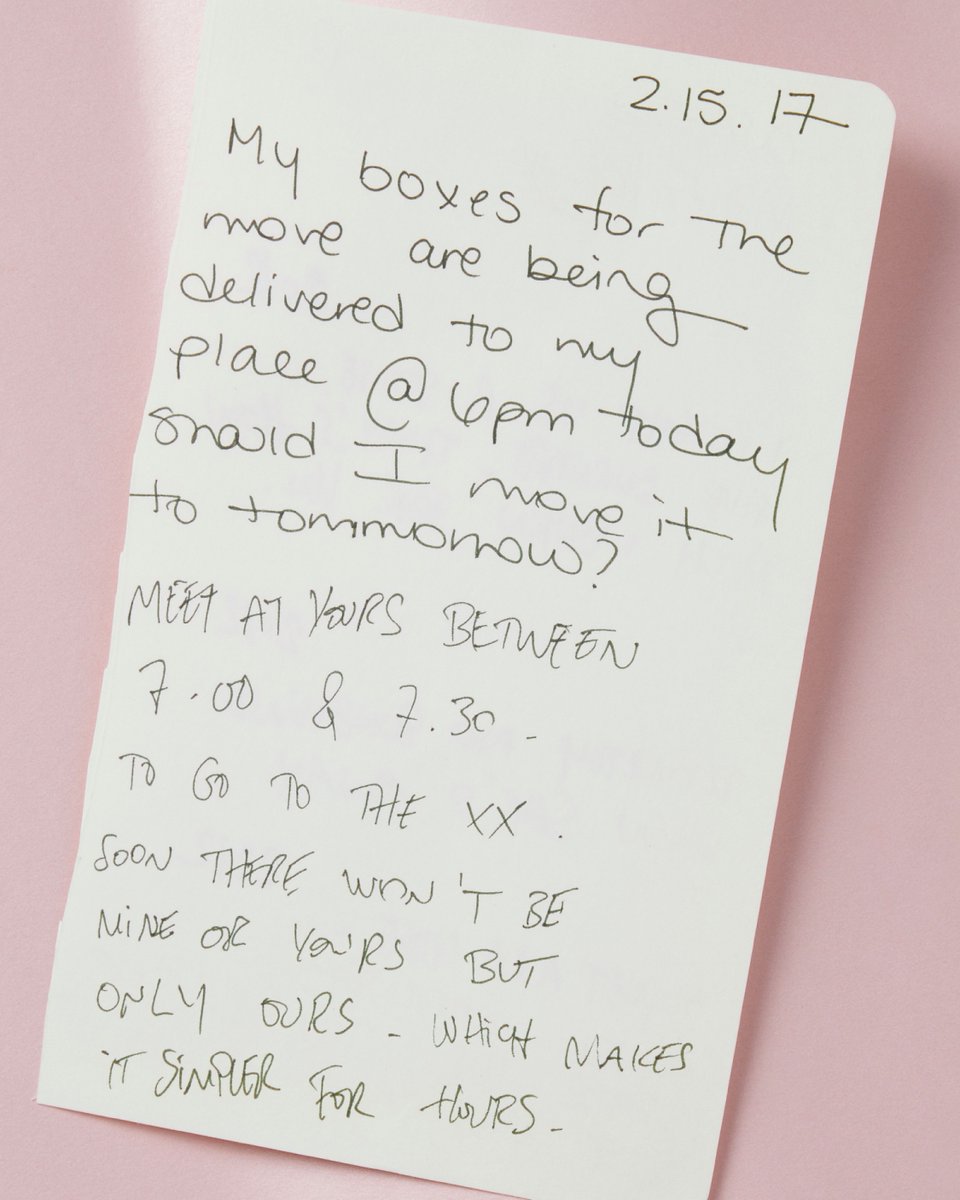 2.15.17
My boxes for The
move are being
delivered to my
place @ 6pm today
should I move it
to tommorrow?
MEET AT YOURS BETWEEN
7.00 & 7.30 -
TO GO TO THE XX .
SOON THERE WON'T BE
MINE OR YOURS BUT
ONLY OURS - WHICH MAKES
iT SiMPLER FOR HOURS -